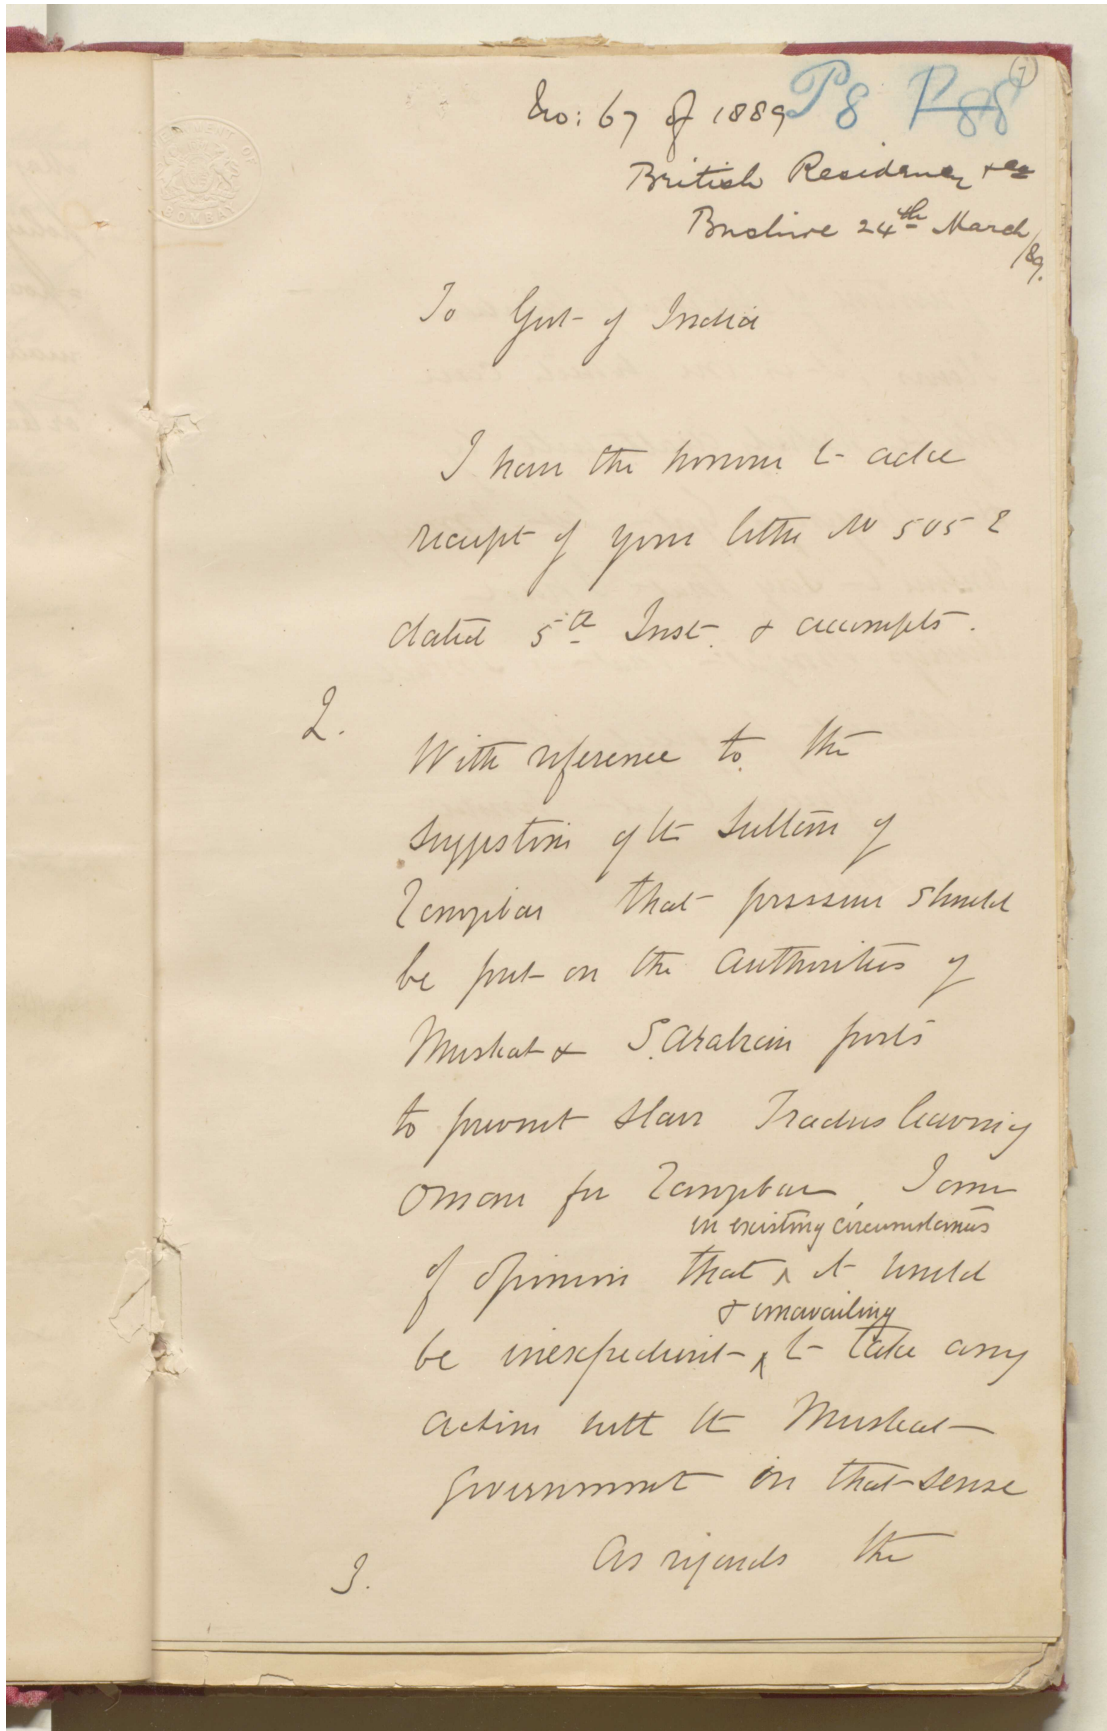 7
No: 67 of 1889 P8 P88
British Residency &ca
Bushire 24th March
/89.
GOVERNMENT OF
BOMBAY
To Govt of India
I have the honour to ackce
receipt of your letter No 505 E
dated 5th Inst. & accompts.
2.
With reference to the
suggestion of the Sultan of
Zanzibar that pressure should
be put on the authorities of
Muskat & S. Arabian ports
to prevent Slave Traders leaving
Oman for Zanzibar, I am
in existing circumstances
of opinion that ^ it would
& unavailing
be inexpedient ^ to take any
action with the Muskat
Government in that sense
3. As regards the